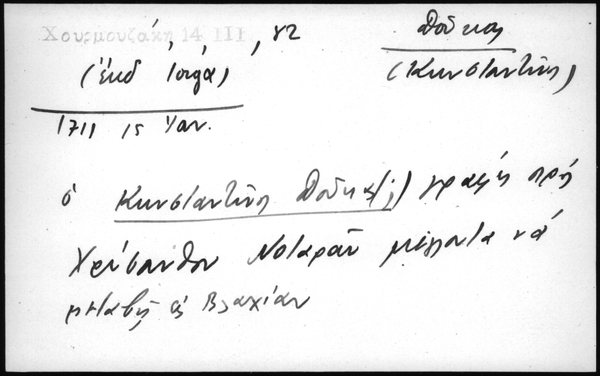 Χουρμουζάκη 14 III, 82
Δούκας
(ἔκδ Ἰόργα)
(Κωνσταντῖνος)
1711 15 Ἰαν.
ὁ Κωνσταντῖνος Δούκας (;) γράφει πρός
Χρύσανθον Νοταρᾶν μέλλοντα νά
μεταβῇ εἰς Βλαχίαν